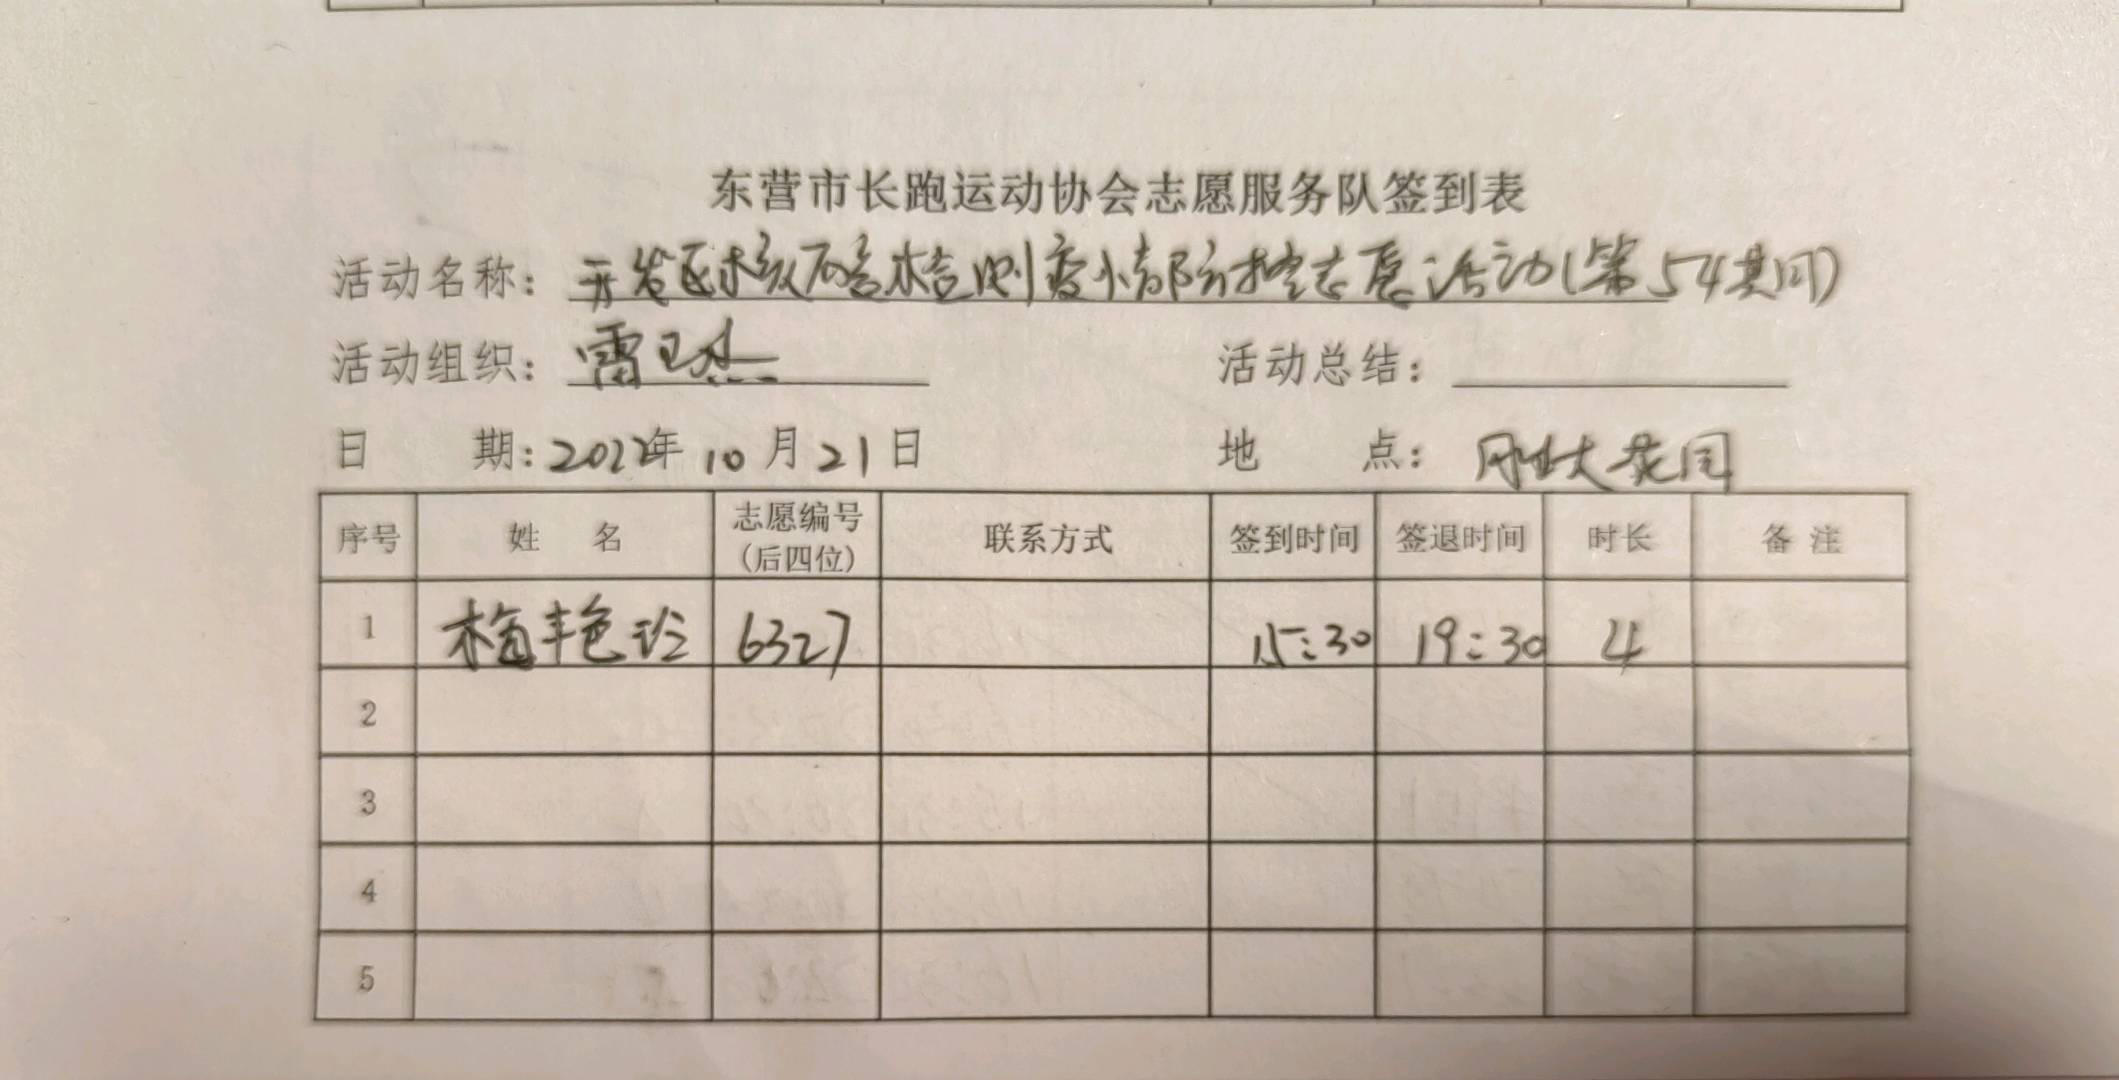 东营市长跑运动协会志愿服务队签到表
活动名称：开发区核酸检测疫情部防控志愿活动(第54期)
活动组织：雷卫杰 活动总结：
日 期：2022年10月21日 地 点：大花园
序号 姓 名 志愿编号（后四位） 联系方式 签到时间 签退时间 时长 备 注
1 梅艳玲 6327 15:30 19:30 4
2
3
4
5